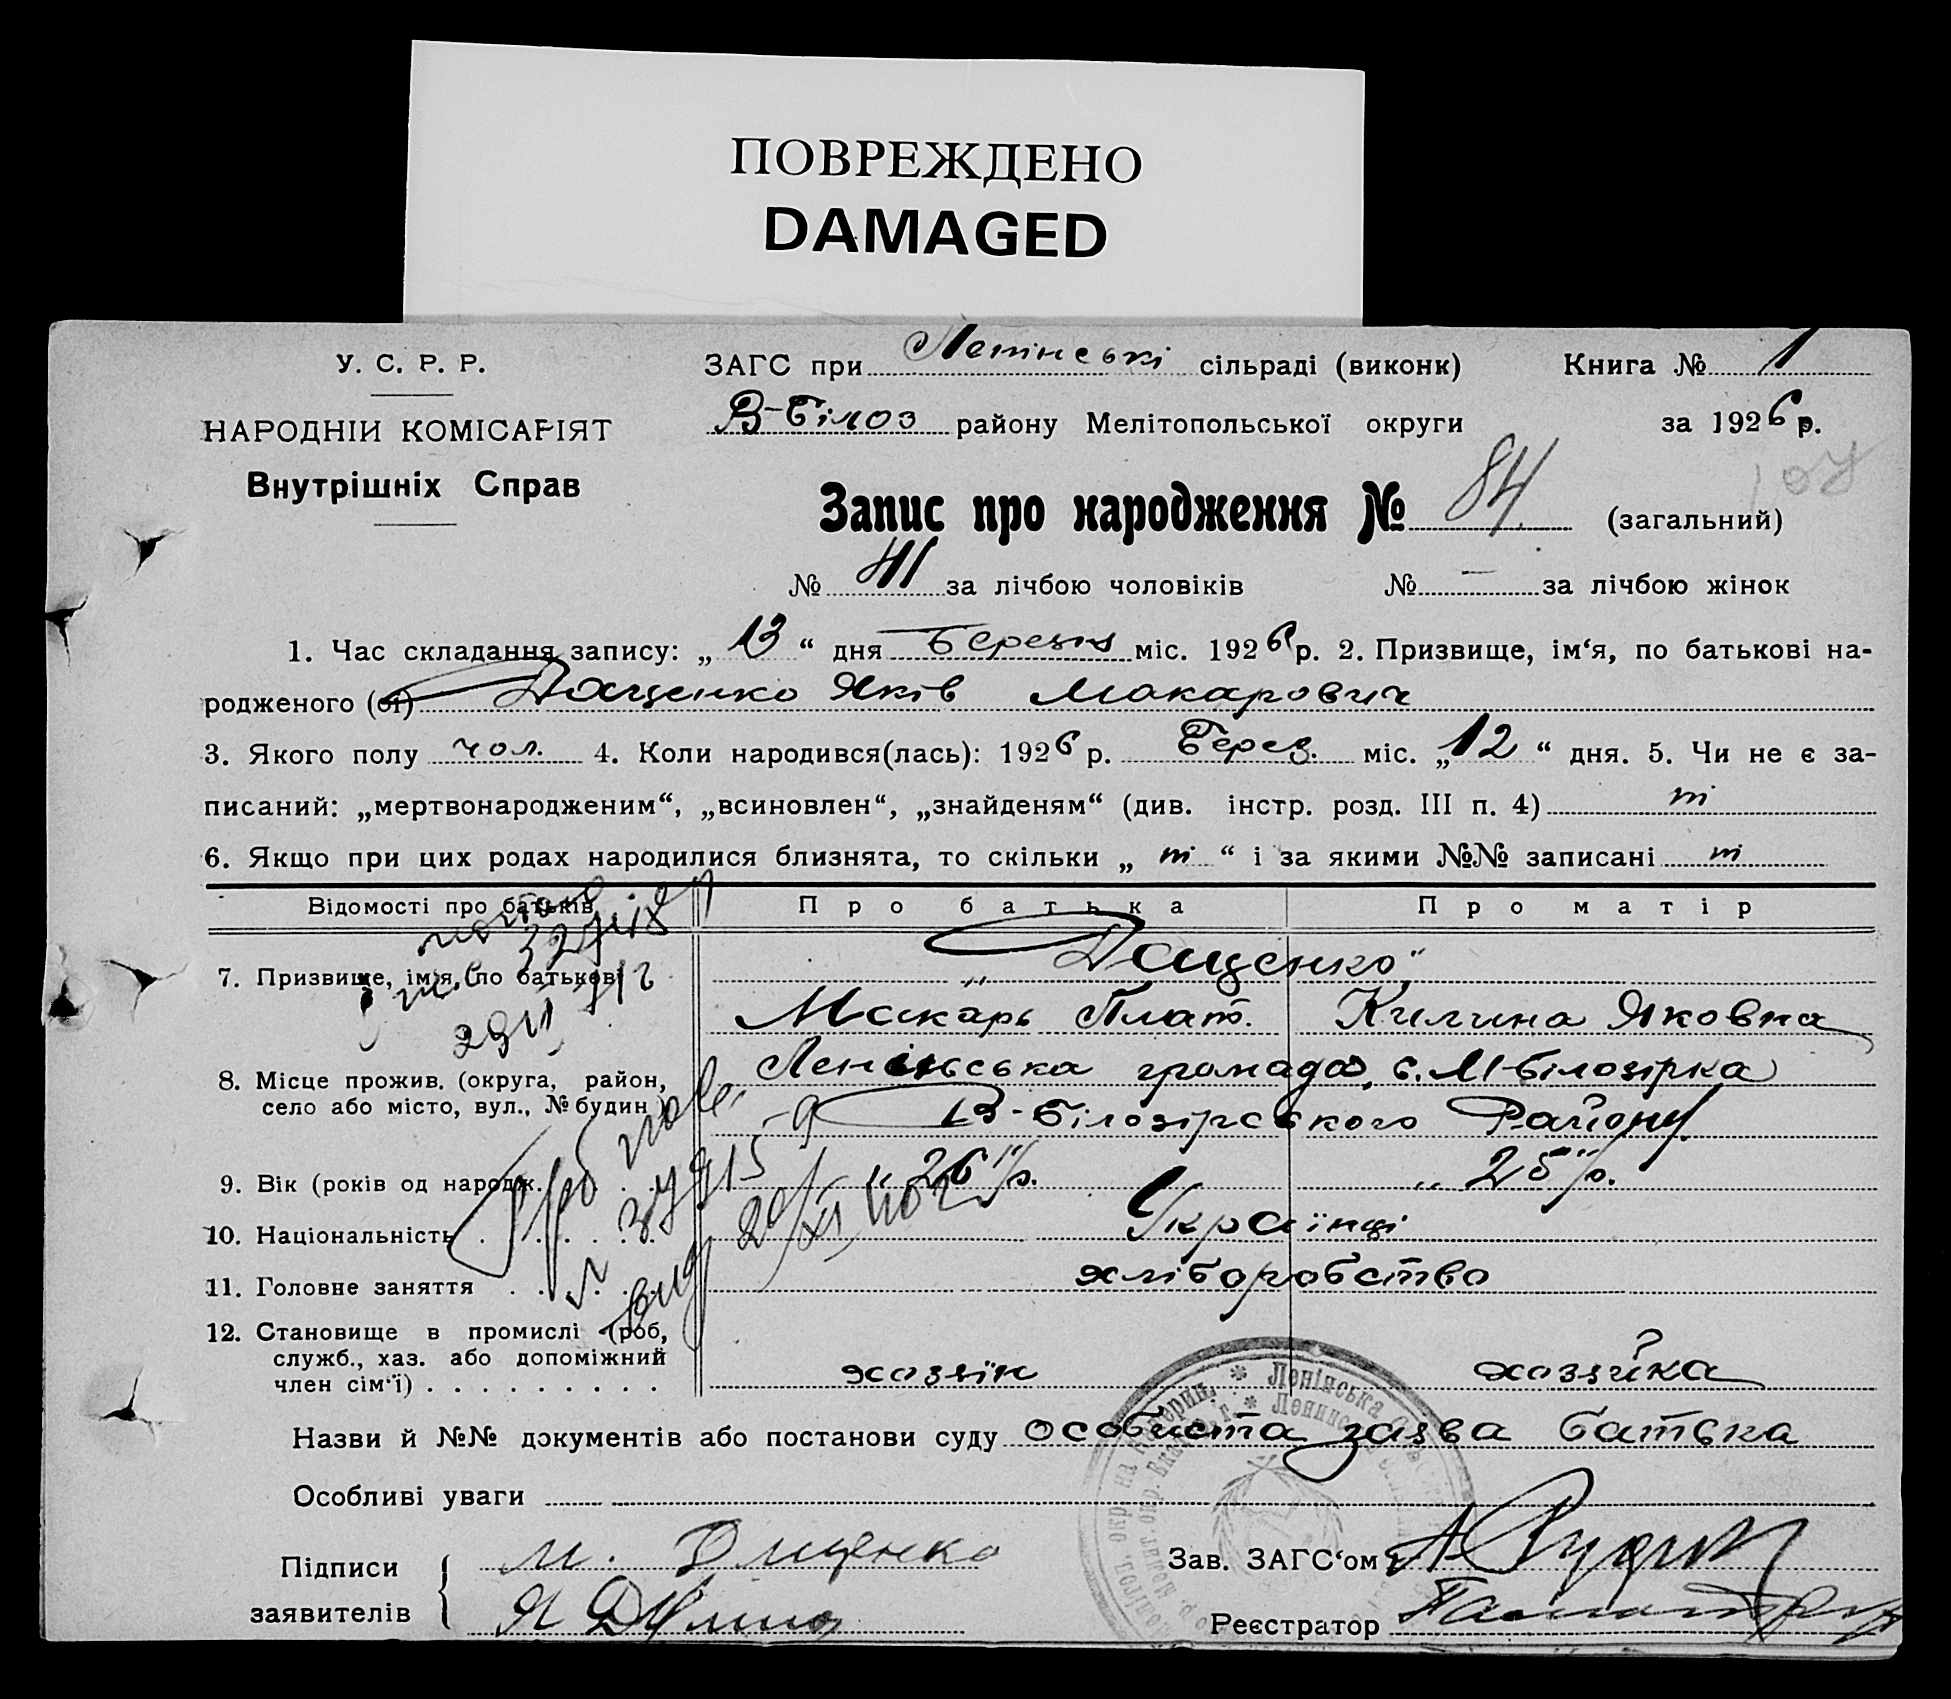 ПОВРЕЖДЕНО
DAMAGED
У. С. Р. Р.
НАРОДНІЙ КОМІСАРІЯТ
Внутрішніх Справ
ЗАГС при Ленінські сільраді (виконк) Книга № 1
В-Білоз району Мелітопольської округи за 1926 р.
107
Запис про народження № 84 (загальний)
№ 41 за лічбою чоловіків № — за лічбою жінок
1. Час складання запису: „13“ дня Березня міс. 1926 р. 2. Призвище, ім‘я, по батькові на-
родженого (ої) Даценко Яків Макарович
3. Якого полу чол. 4. Коли народився(лась): 1926 р. Берез. міс. „12“ дня. 5. Чи не є за-
писаний: „мертвонародженим“, „всиновлен“, „знайденям“ (див. інстр. розд. III п. 4) ні
6. Якщо при цих родах народилися близнята, то скільки „ ні “ і за якими №№ записані ні
Відомості про батьків Про батька Про матір
7. Призвище, ім‘я, по батькові „ Даценко “
Макарь Плат. Килина Яковна
8. Місце прожив. (округа, район, Ленінська громада, с. М-Білозірка
село або місто, вул., № будин.) В-Білозірського Району
9. Вік (років од народж. „ 26 “ р. „ 25 “ р.
10. Національність Українці
11. Головне заняття хліборобство
12. Становище в промислі (роб,
служб., хаз. або допоміжний
член сім‘ї) хозяїн хозяйка
Назви й №№ документів або постанови суду Особиста заява батька
Особливі уваги
Підписи М. Даценко Зав. ЗАГС‘ом
заявителів Реєстратор